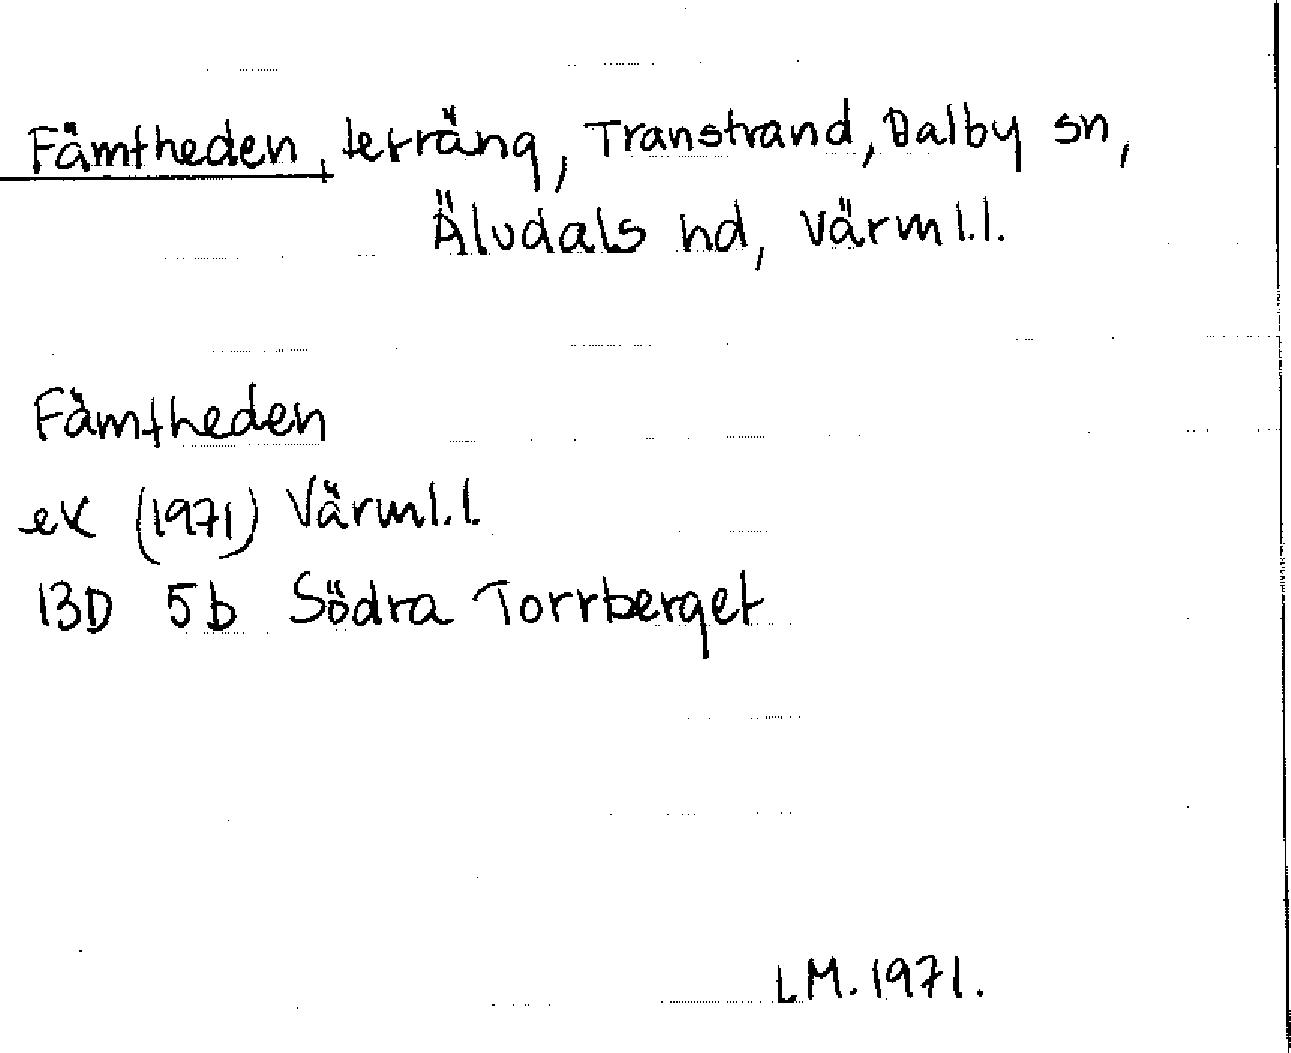 Fämtheden, terräng, Transtrand, Dalby sn,
Älvdals hd, Värml.l.
Fämtheden
ek (1971) Värml.l.
13D 5b Södra Torrberget
LM. 1971.